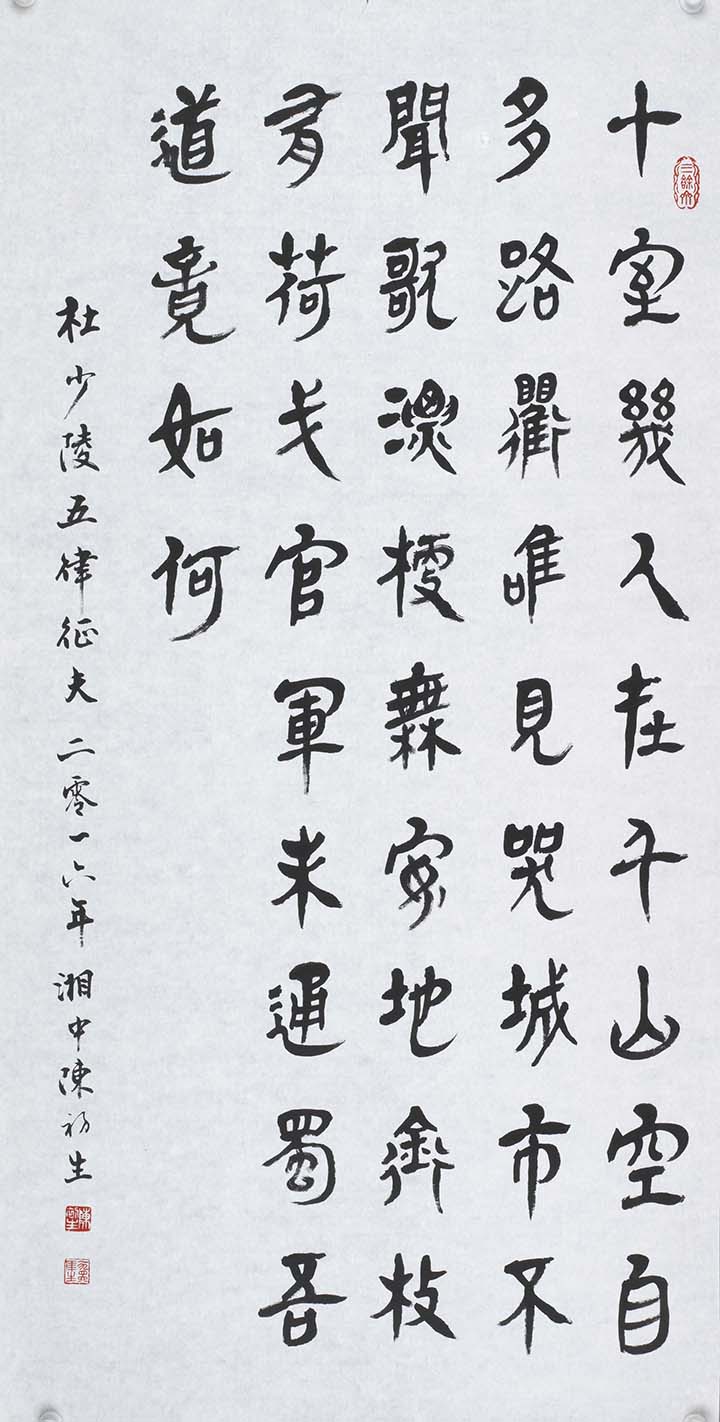 十室幾人在千山空自
多路衢唯見哭城市不
聞歌漂梗無安地銜枝
有荷戈官軍未通蜀吾
道竟如何
杜少陵五律征夫 二零一六年 湘中陳初生